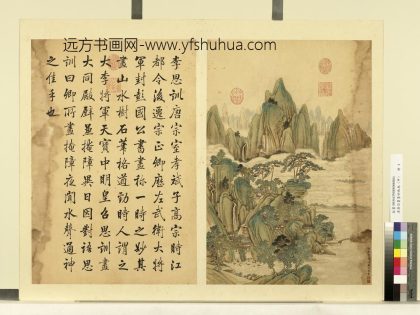 远方书画网-www.yfshuhua.com
李思訓唐宗室孝斌子高宗時江
都令後遷宗正卿歷左武衛大將
軍封彭國公書畫稱一時之妙其
畫山水樹石筆格遒勁時人謂之
大李將軍天寶中明皇召思訓畫
大同殿壁並掩障異日因對語思
訓曰卿所畫掩障夜聞水聲通神
之佳手也